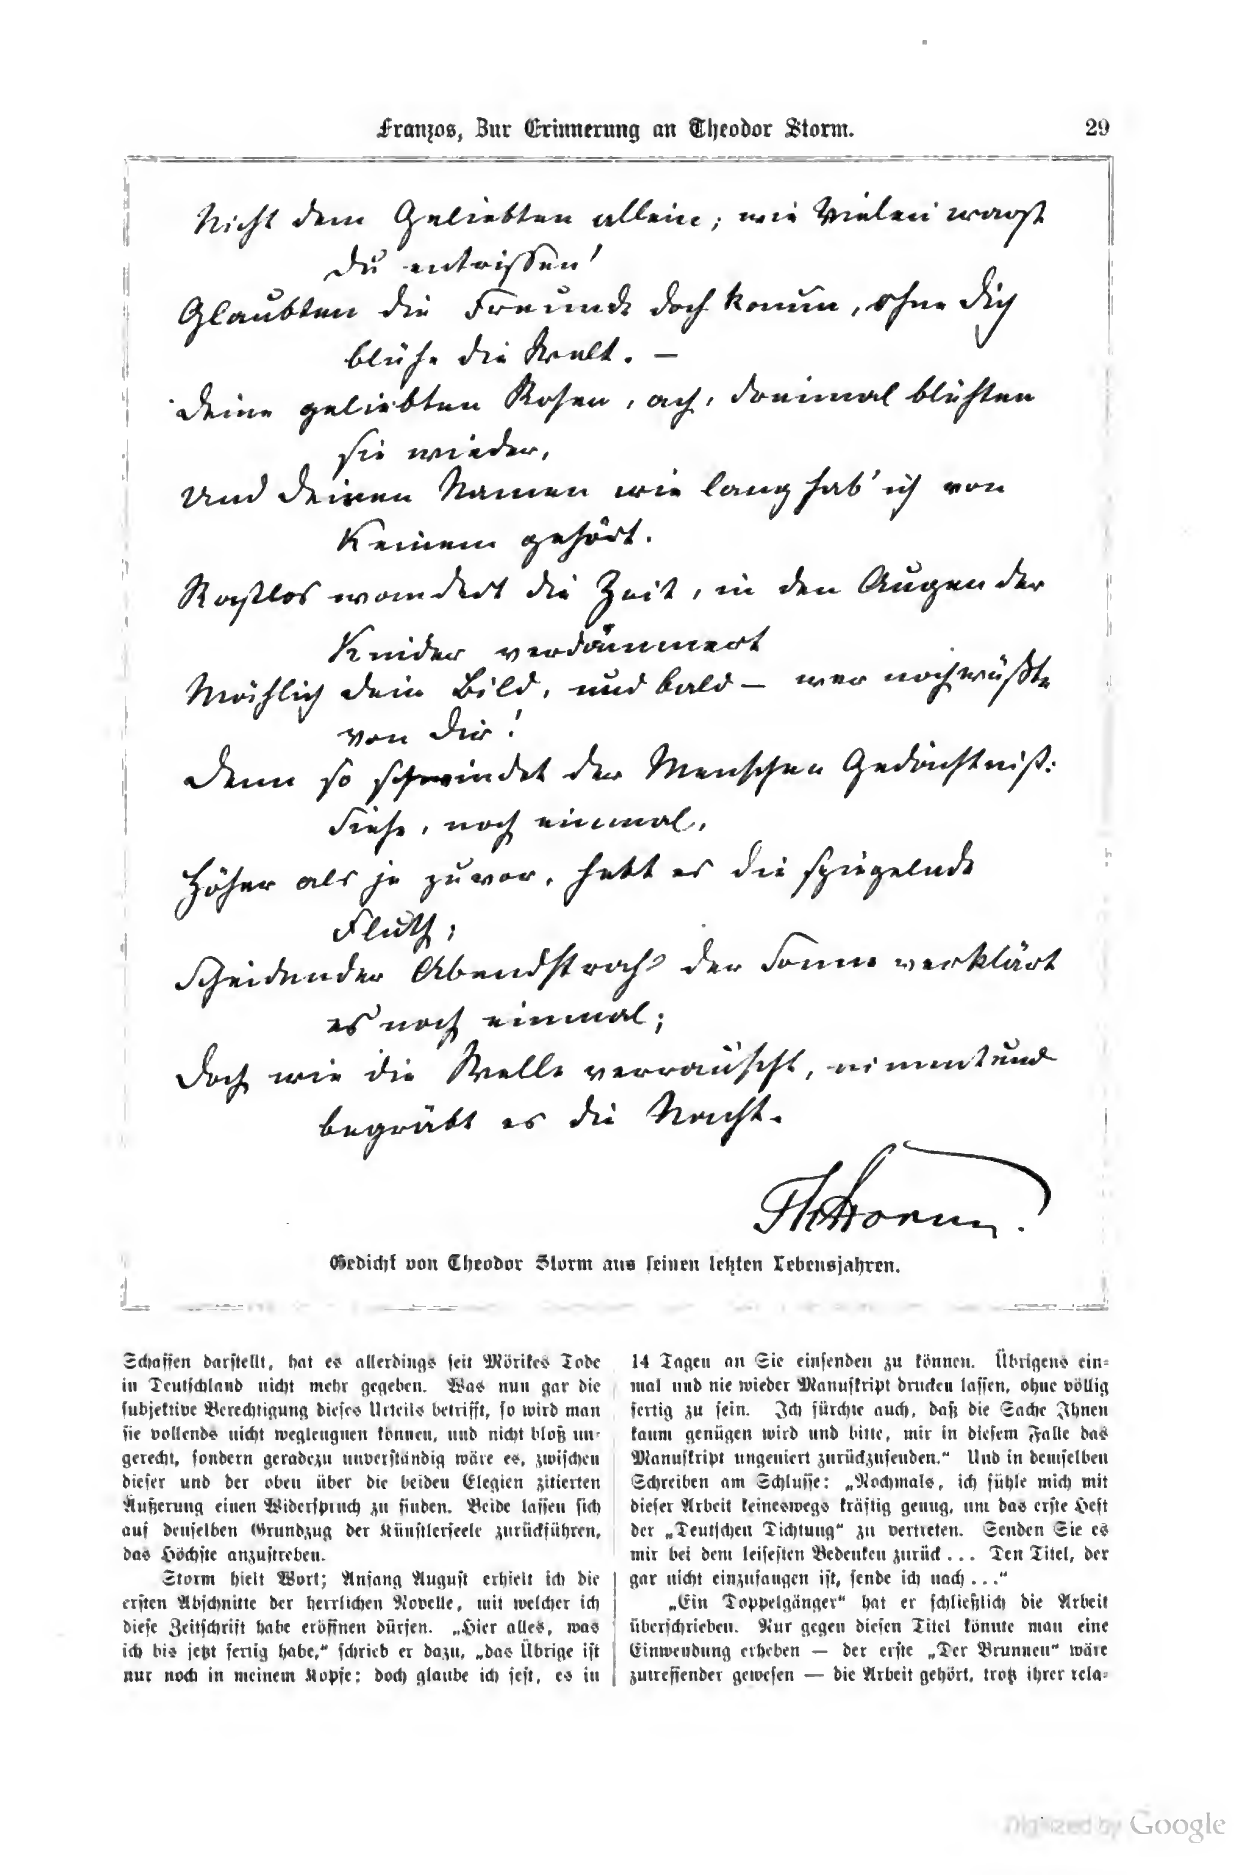 Franzos, Zur Erinnerung an Theodor Storm.
29
Nicht dem Geliebten allein; wie Vielen warst
du entrissen!
Glaubten die Freunde doch kaum, ohne dich
blühe die Welt. —
Deine geliebten Rosen, ach, dreimal blühten
sie wieder,
Und deinen Namen wie lang hab' ich von
Keinem gehört.
Rastlos wandert die Zeit, in den Augen der
Kinder verdämmert
Mählich dein Bild, und bald — wer noch wüßte
von dir!
Denn so schwindet der Menschen Gedächtniß:
Siehe, noch einmal,
Höher als je zuvor, hebt es die spiegelnde
Fluth;
Scheidender Abendstrahl der Sonne verklärt
es noch einmal;
Doch wie die Welle verrauscht, nimmt und
begräbt es die Nacht.
ThStorm.
Gedicht von Theodor Storm aus seinen letzten Lebensjahren.
Schaffen darstellt, hat es allerdings seit Mörikes Tode
in Deutschland nicht mehr gegeben. Was nun gar die
subjektive Berechtigung dieses Urteils betrifft, so wird man
sie vollends nicht wegleugnen können, und nicht bloß un-
gerecht, sondern geradezu unverständig wäre es, zwischen
dieser und der oben über die beiden Elegien zitierten
Äußerung einen Widerspruch zu finden. Beide lassen sich
auf denselben Grundzug der Künstlerseele zurückführen,
das Höchste anzustreben.
Storm hielt Wort; Anfang August erhielt ich die
ersten Abschnitte der herrlichen Novelle, mit welcher ich
diese Zeitschrift habe eröffnen dürfen. „Hier alles, was
ich bis jetzt fertig habe,“ schrieb er dazu, „das Übrige ist
nur noch in meinem Kopfe; doch glaube ich fest, es in
14 Tagen an Sie einsenden zu können. Übrigens ein-
mal und nie wieder Manuskript drucken lassen, ohne völlig
fertig zu sein. Ich fürchte auch, daß die Sache Ihnen
kaum genügen wird und bitte, mir in diesem Falle das
Manuskript ungeniert zurückzusenden.“ Und in demselben
Schreiben am Schlusse: „Nochmals, ich fühle mich mit
dieser Arbeit keineswegs kräftig genug, um das erste Heft
der „Deutschen Dichtung“ zu vertreten. Senden Sie es
mir bei dem leisesten Bedenken zurück ... Den Titel, der
gar nicht einzufangen ist, sende ich nach ...“
„Ein Doppelgänger“ hat er schließlich die Arbeit
überschrieben. Nur gegen diesen Titel könnte man eine
Einwendung erheben — der erste „Der Brunnen“ wäre
zutreffender gewesen — die Arbeit gehört, trotz ihrer rela-
Digitized by Google